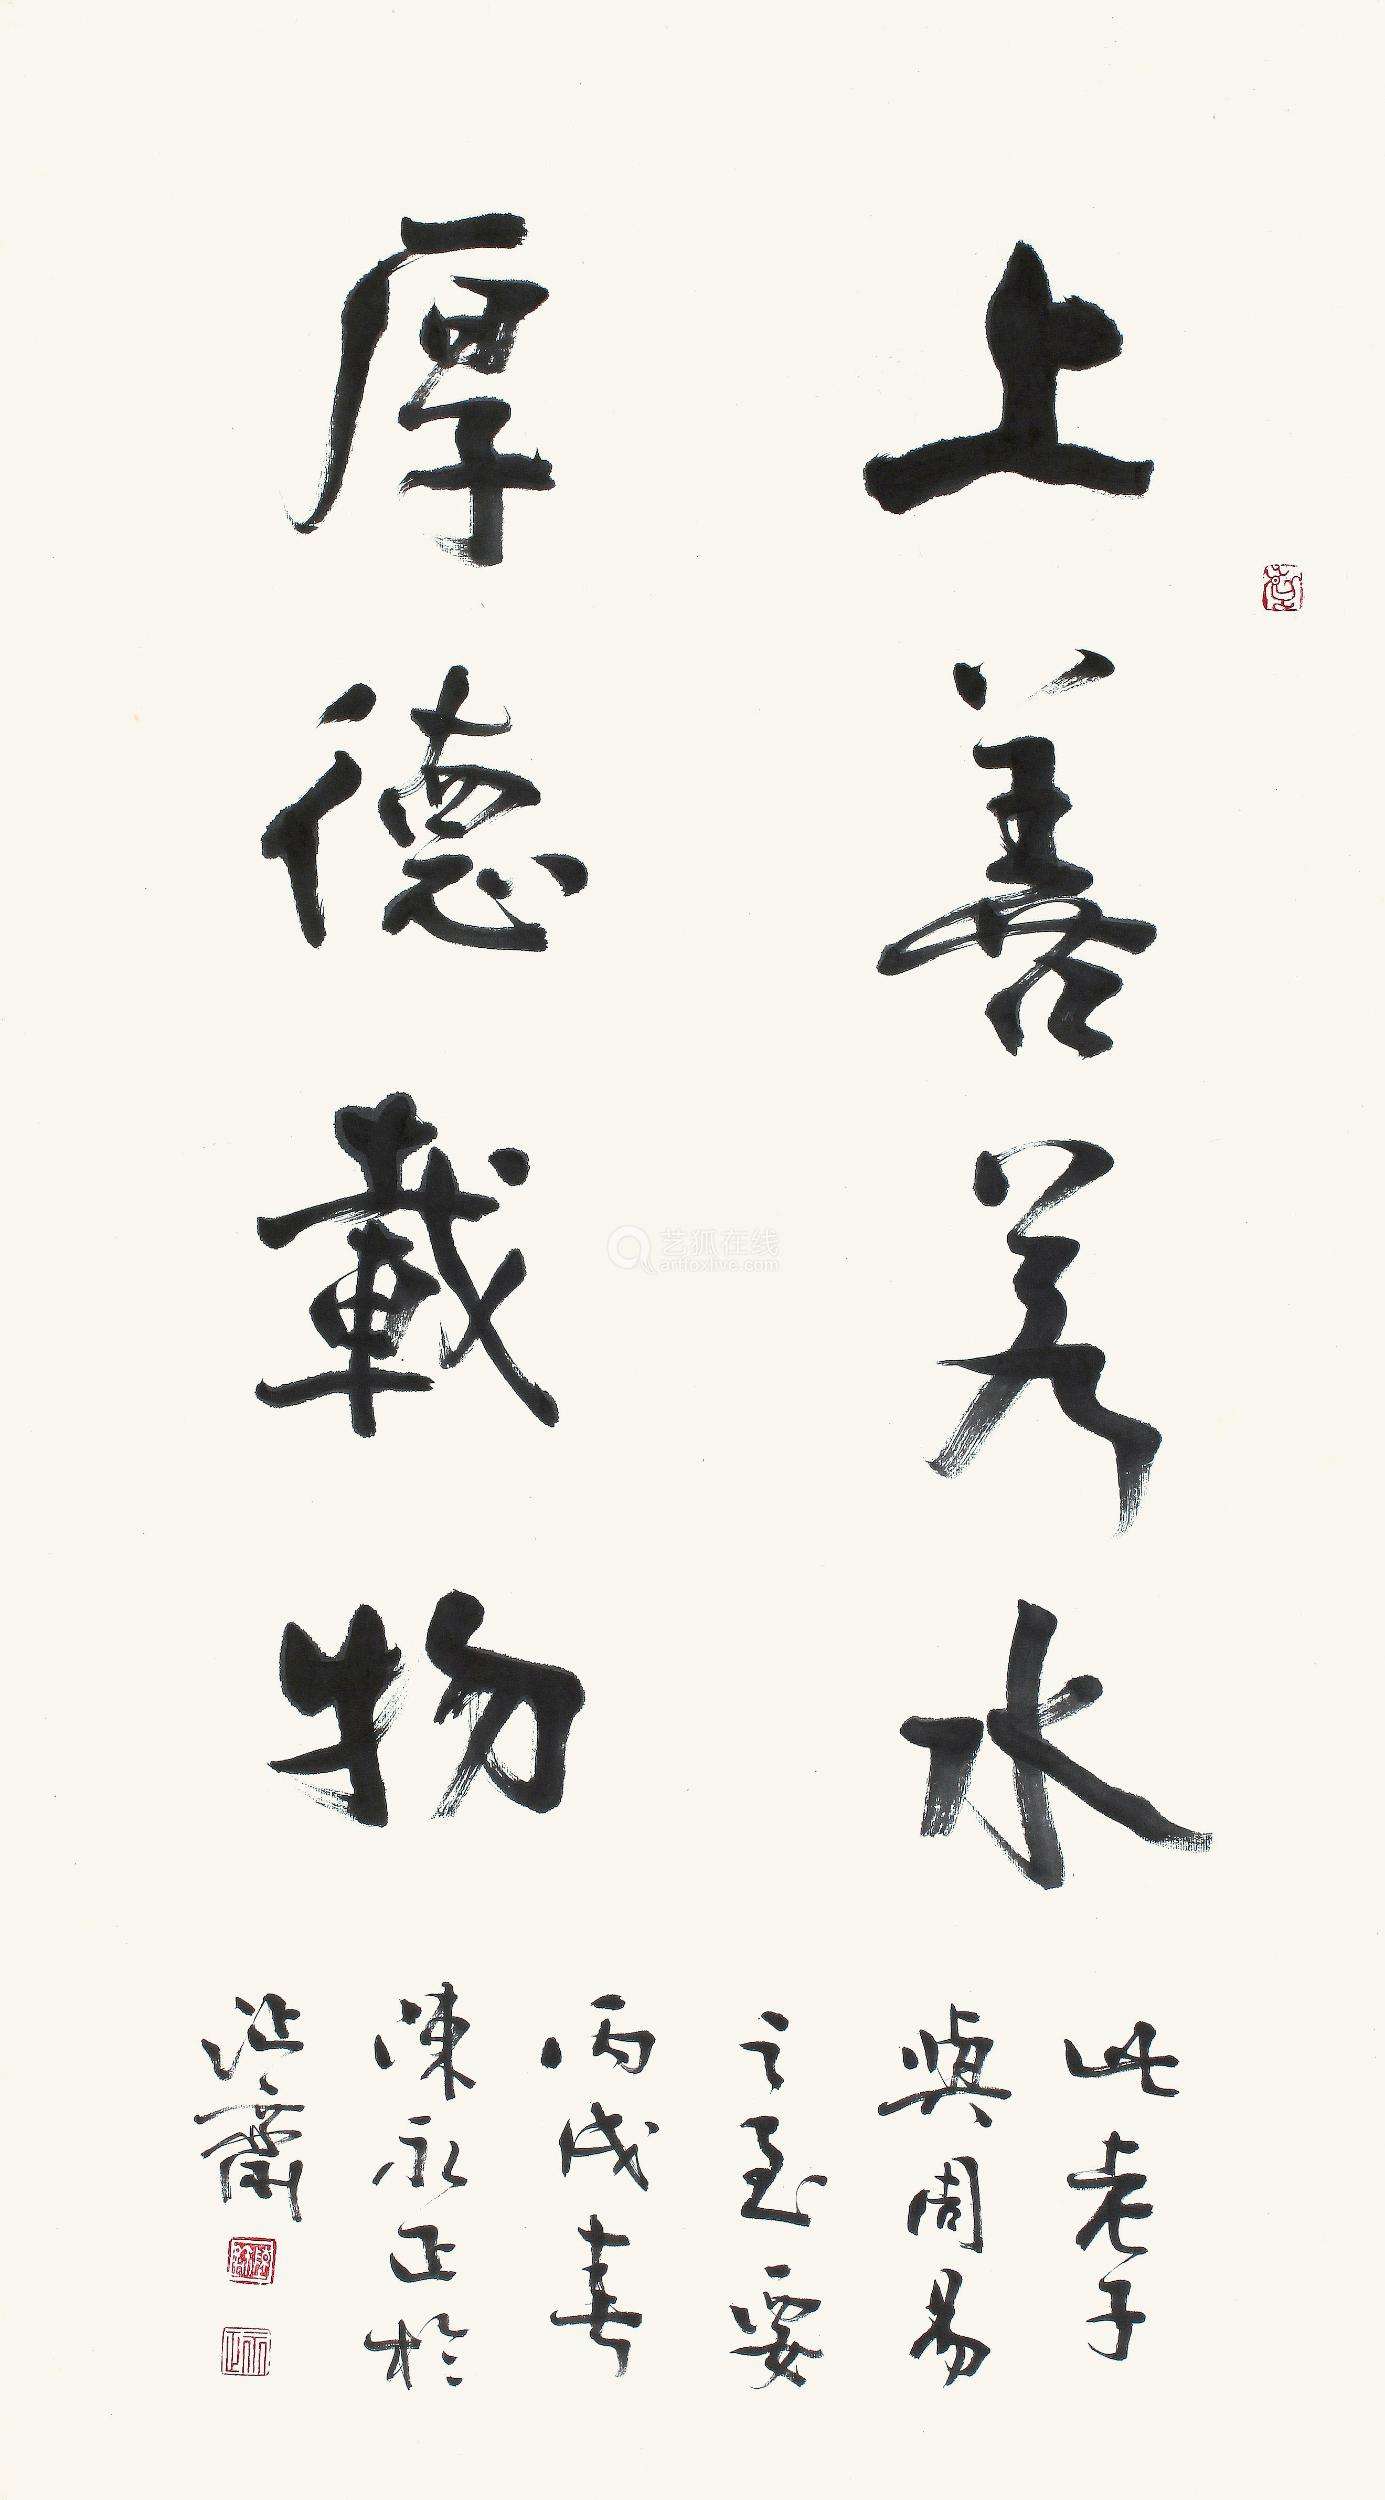 上善若水
厚德載物
此老子
與周易
之至要
丙戌春
陳永正於
沚齋
艺狐在线
artfoxlive.com